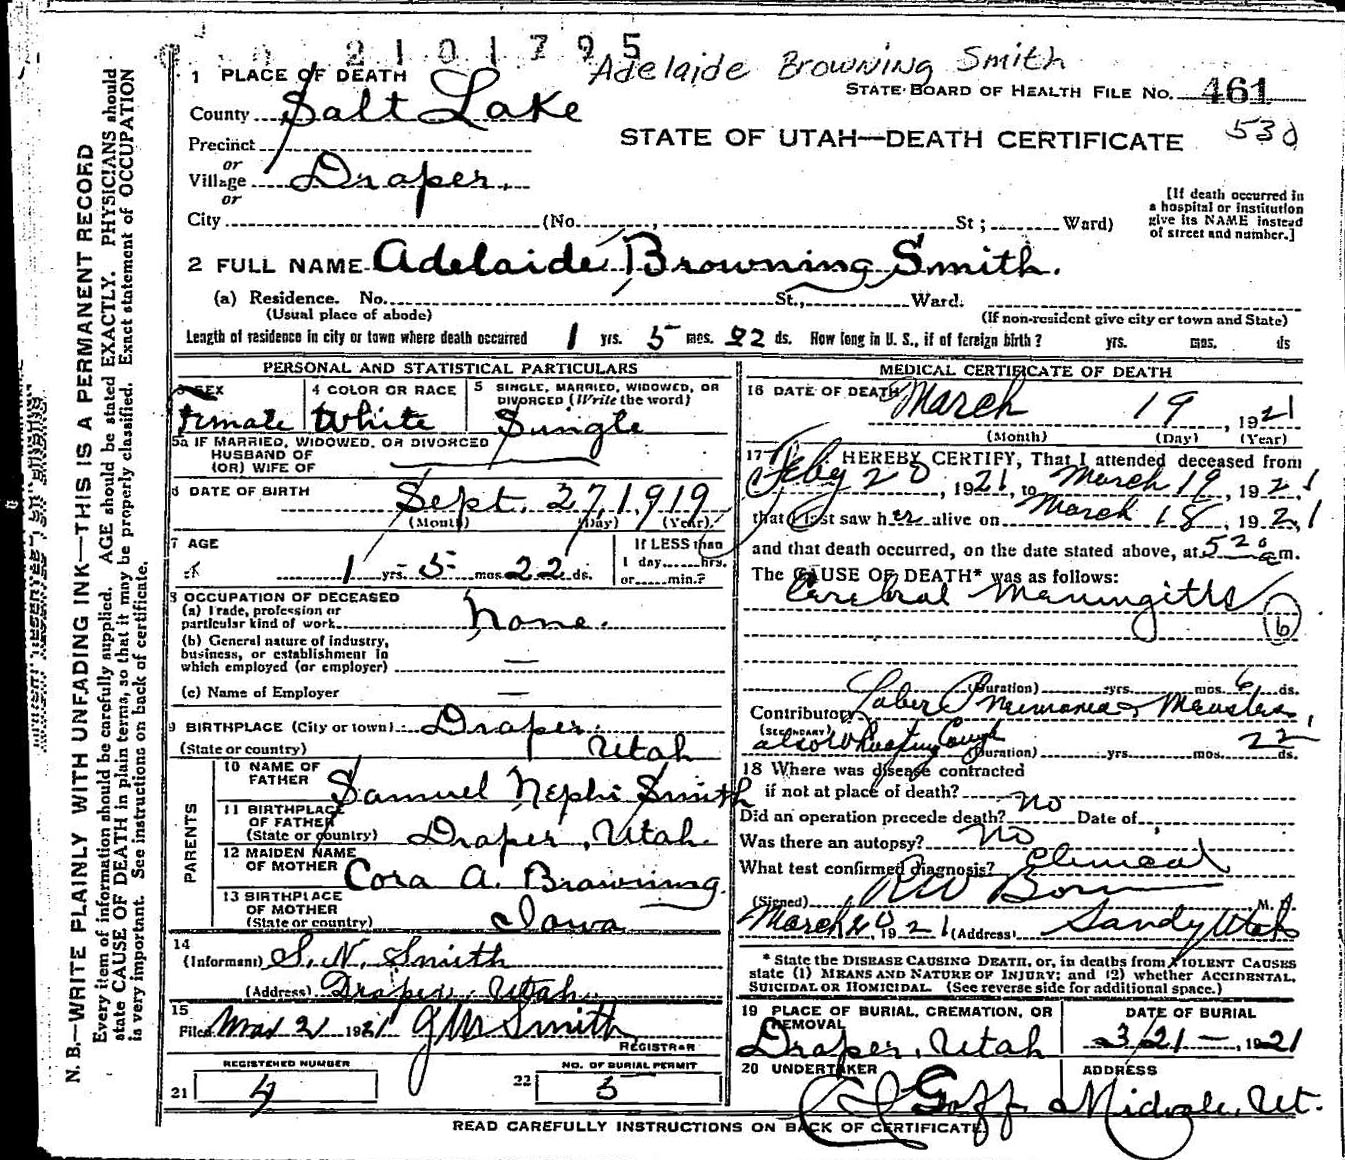 2101795
Adelaide Browning Smith
1 PLACE OF DEATH
STATE BOARD OF HEALTH FILE NO. 461
County Salt Lake
530
STATE OF UTAH—DEATH CERTIFICATE
Precinct
or
Village Draper.
or
[If death occurred in
a hospital or institution
give its NAME instead
of street and number.]
City (No. , St ; Ward)
2 FULL NAME Adelaide Browning Smith.
(a) Residence. No. St., Ward.
(Usual place of abode) (If non-resident give city or town and State)
Length of residence in city or town where death occurred 1 yrs. 5 mos. 22 ds. How long in U. S., if of foreign birth? yrs. mos. ds
PERSONAL AND STATISTICAL PARTICULARS
3 SEX 4 COLOR OR RACE 5 SINGLE, MARRIED, WIDOWED, OR
DIVORCED (Write the word)
Female White Single
5a IF MARRIED, WIDOWED, OR DIVORCED
HUSBAND OF
(OR) WIFE OF
6 DATE OF BIRTH Sept. 27, 1919
(Month) (Day) (Year)
7 AGE If LESS than
1 day hrs.
1 yrs. 5 mos. 22 ds. or min.?
8 OCCUPATION OF DECEASED
(a) Trade, profession or
particular kind of work None.
(b) General nature of industry,
business, or establishment in
which employed (or employer) —
(c) Name of Employer —
9 BIRTHPLACE (City or town) Draper
(State or country) Utah
PARENTS
10 NAME OF
FATHER Samuel Nephi Smith
11 BIRTHPLACE
OF FATHER
(State or country) Draper, Utah.
12 MAIDEN NAME
OF MOTHER Cora A. Browning
13 BIRTHPLACE
OF MOTHER
(State or country) Iowa
14
(Informant) S. N. Smith
(Address) Draper, Utah.
15
Filed Mar 21 1921 J M Smith
REGISTRAR
REGISTERED NUMBER NO. OF BURIAL PERMIT
21 4 22 5
MEDICAL CERTIFICATE OF DEATH
16 DATE OF DEATH March 19, 1921
(Month) (Day) (Year)
17 I HEREBY CERTIFY, That I attended deceased from
Feby 20, 1921, to March 19, 1921
that I last saw her alive on March 18, 1921
and that death occurred, on the date stated above, at 5 20 a m.
The CAUSE OF DEATH* was as follows:
Cerebral Meningitis
6
(Duration) yrs. mos. 6 ds.
Contributory Lobar Pneumonia & Measles,
(SECONDARY)
also Whooping Cough
(Duration) yrs. mos. 22 ds.
18 Where was disease contracted
if not at place of death?
Did an operation precede death? no Date of
Was there an autopsy? No
What test confirmed diagnosis? Clinical
(Signed) M. D.
March 20, 1921 (Address) Sandy Utah
* State the DISEASE CAUSING DEATH, or, in deaths from VIOLENT CAUSES
state (1) MEANS AND NATURE OF INJURY; and (2) whether ACCIDENTAL,
SUICIDAL OR HOMICIDAL. (See reverse side for additional space.)
19 PLACE OF BURIAL, CREMATION, OR
REMOVAL DATE OF BURIAL
Draper, Utah 3/21—, 1921
20 UNDERTAKER ADDRESS
Goff Midvale, Ut.
READ CAREFULLY INSTRUCTIONS ON BACK OF CERTIFICATE.
N. B.—WRITE PLAINLY WITH UNFADING INK—THIS IS A PERMANENT RECORD
Every item of information should be carefully supplied. AGE should be stated EXACTLY. PHYSICIANS should
state CAUSE OF DEATH in plain terms, so that it may be properly classified. Exact statement of OCCUPATION
is very important. See instructions on back of certificate.